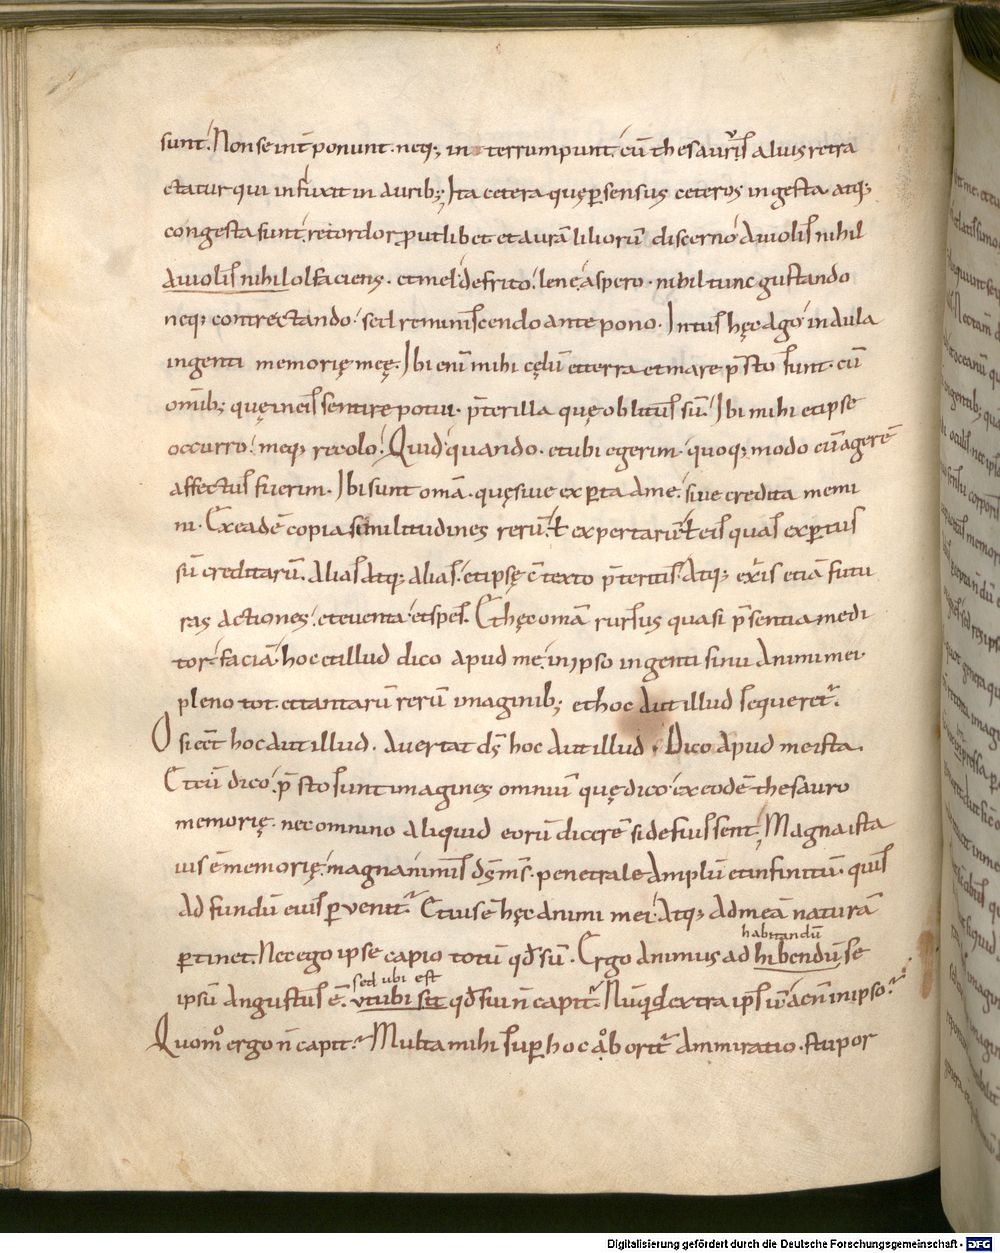 sunt. Non se int̄ponunt. neq; interrumpunt. cū thesaurꝰ alius retra
ctatur qui influxit in aurib; Ita cetera quę ꝑ sensus ceteros ingesta atq;
congesta sunt. recordor ꝓut libet et aurā liliorū discerno a uiolis nihil
a uiolis nihil olfaciens. et mel defrito. lene aspero. nihil tunc gustando
neq; contrectando. sed reminiscendo antepono. Intus hęc ago in aula
ingenti memorię meę. Ibi enī mihi cęlū et terra et mare p̄sto sunt. cū
omīb; quę in eis sentire potui. p̄ter illa quę oblitus sū. Ibi mihi et ipse
occurro. meq; recolo. Quid quando. et ubi egerim. quoq; modo cū agerē
affectus fuerim. Ibi sunt omā. quę siue exꝑta a me. siue credita memi
ni. Ex eadē copia similitudines rerū ł expertarū ł eis quas exꝑtus
sū creditarū. alias atq; alias. et ipsę c̄texto p̄teritis. atq; ex his etiā futu
ras actiones. et euenta et spes. Et hęc omā rursus quasi p̄sentia medi
tor. faciā hoc et illud dico apud me. in ipso ingenti sinu animi mei.
pleno tot. et tantarū rerū imaginib; et hoc aut illud sequeret̄.
O si eēt hoc aut illud. auertat ds̄ hoc aut illud. Dico apud me ista.
Et cū dico. p̄sto sunt imagines omniū quę dico ex eodē thesauro
memorię. nec omnino aliquid eorū dicerē si defuissent. Magna ista
uis ē memorię. magna nimis ds̄ ms̄. penetrale amplū et infinitū. quis
ad fundū eius ꝑuenit. Et uis ē hęc animi mei. atq; ad meā naturā
ꝑtinet. Nec ego ipse capio totū qđ sū. Ergo animus ad hibendū se
habitandū
ipsū angustus ē. ut ubi set qđ sui n̄ capit. Nūqd extra ipsū ac n̄ in ipso.
sed ubi est
Quomº ergo n̄ capit. Multa mihi suꝑ hoc aborit̄ ammiratio. stupor
Digitalisierung gefördert durch die Deutsche Forschungsgemeinschaft - DFG